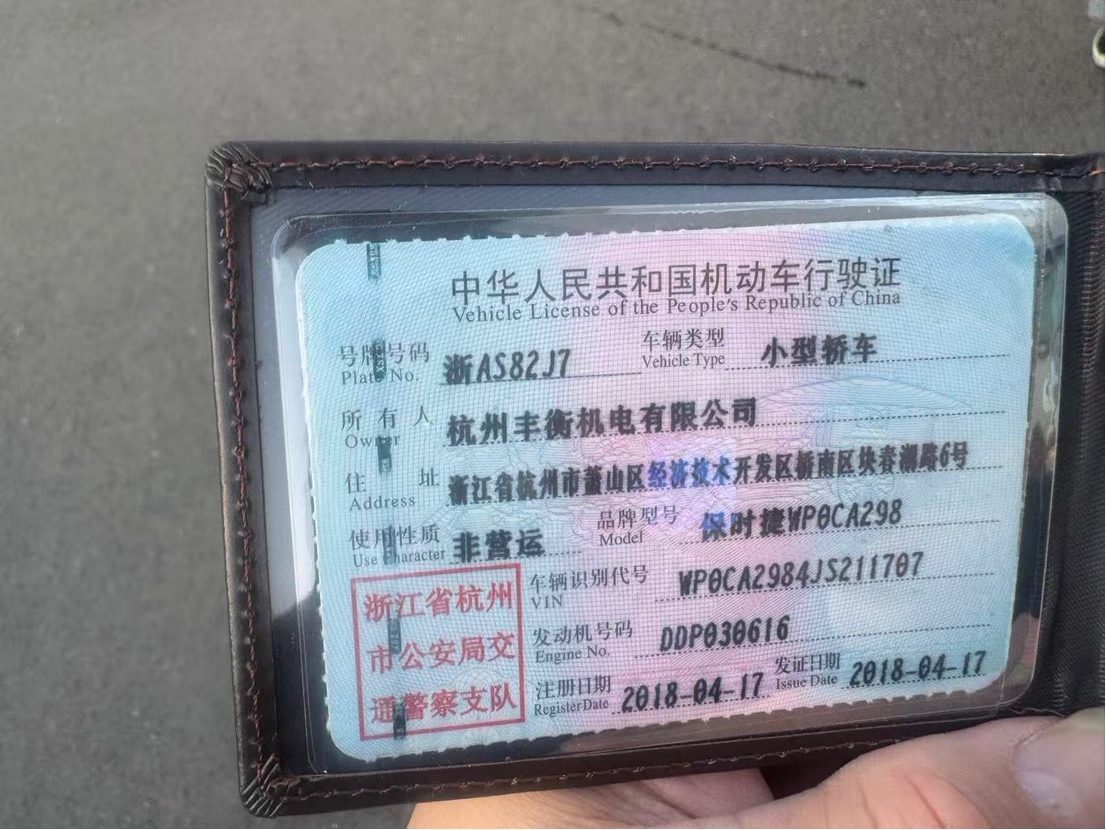 中华人民共和国机动车行驶证
Vehicle License of the People's Republic of China
号牌号码 浙AS82J7 车辆类型 小型轿车
Plate No. Vehicle Type
所有人 杭州丰衡机电有限公司
Owner
住址 浙江省杭州市萧山区经济技术开发区桥南区块春潮路6号
Address
使用性质 非营运 品牌型号 保时捷WP0CA298
Use Character Model
浙江省杭州 车辆识别代号 WP0CA2984JS211707
VIN
市公安局交 发动机号码 DDP030616
Engine No.
通警察支队 注册日期 2018-04-17 发证日期 2018-04-17
Register Date Issue Date